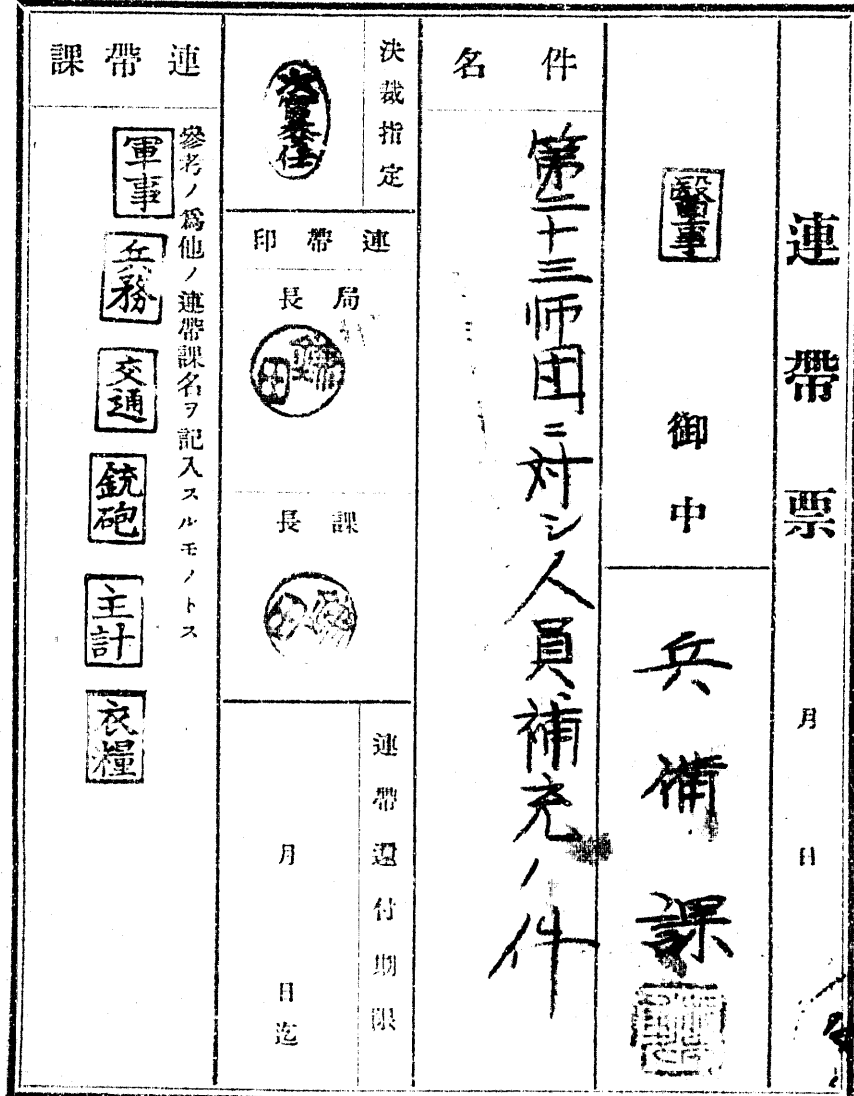 連帶票
月 日
醫事 御中
兵備課
件名
第二十三师団ニ対シ人員補充ノ件
決裁指定
次官委任
連帶印
局長
課長
連帶還付期限
月 日迄
連帶課
參考ノ爲他ノ連帶課名ヲ記入スルモノトス
軍事
兵務
交通
銃砲
主計
衣糧